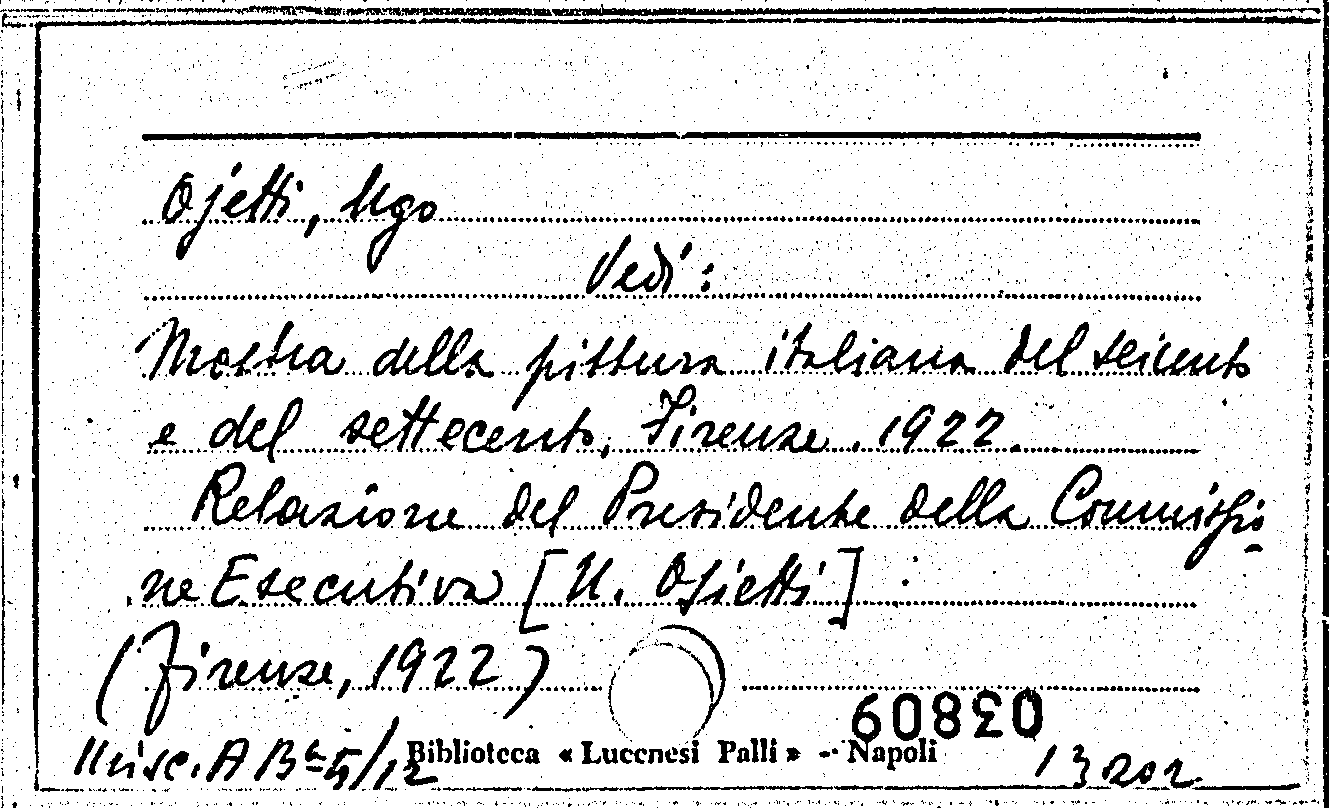 Ojetti, Ugo
Vedi:
Mostra della pittura italiana del seicento
e del settecento, Firenze. 1922.
Relazione del Presidente della Commissio-
ne Esecutiva [U. Ojetti]
(Firenze, 1922)
03809
Misc. A Bª 5/12 Biblioteca « Lucchesi Palli » - Napoli